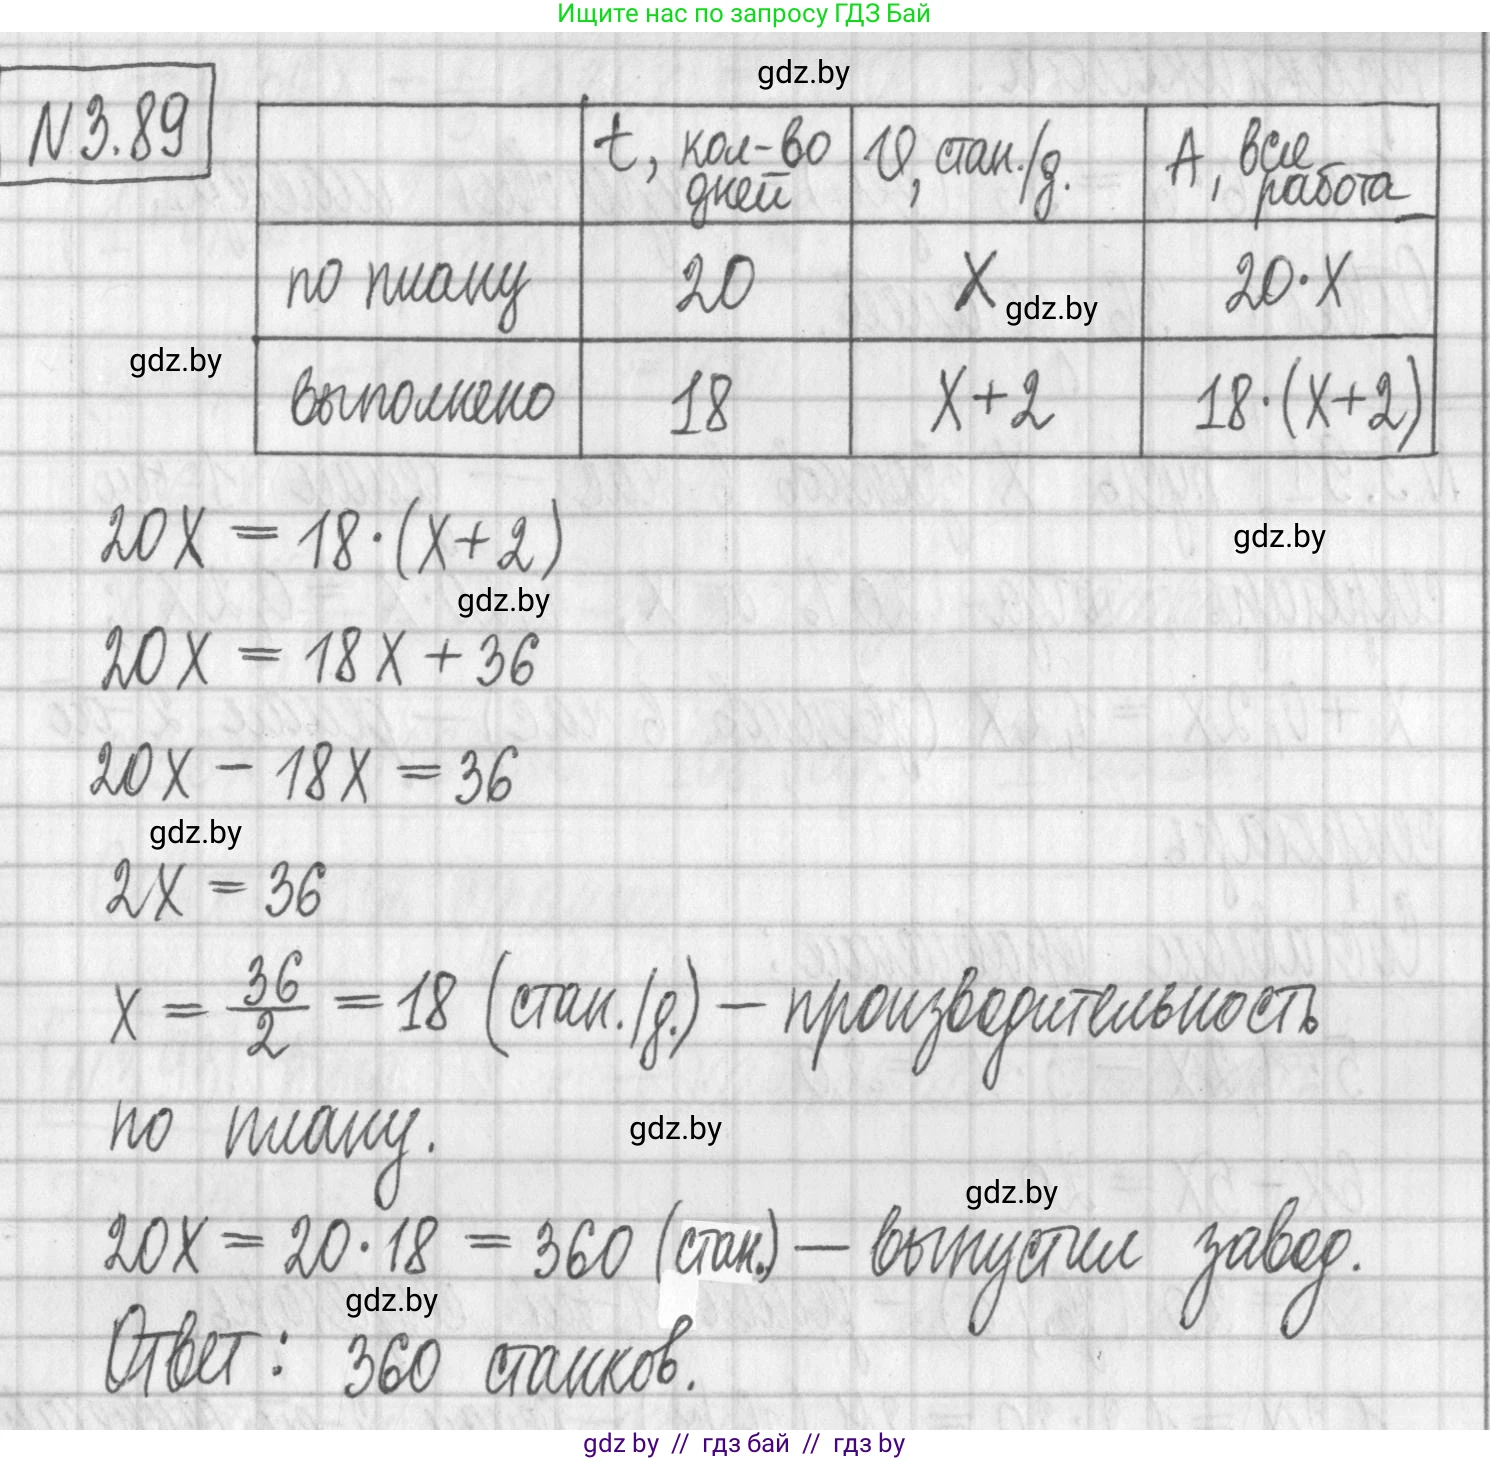 Ищите нас по запросу ГДЗ Бай
gdz.by
N3.89
t, кол-во дней
V, стан./д.
A, вся работа
по плану
20
X
20·X
gdz.by
gdz.by
выполнено
18
X+2
18·(X+2)
20X = 18·(X+2)
gdz.by
gdz.by
20X = 18X + 36
20X - 18X = 36
gdz.by
2X = 36
X = 36/2 = 18 (стан./д.) - производительность
по плану.
gdz.by
gdz.by
20X = 20·18 = 360 (стан.) - выпустил завод.
gdz.by
Ответ: 360 станков.
gdz by // гдз бай // гдз by